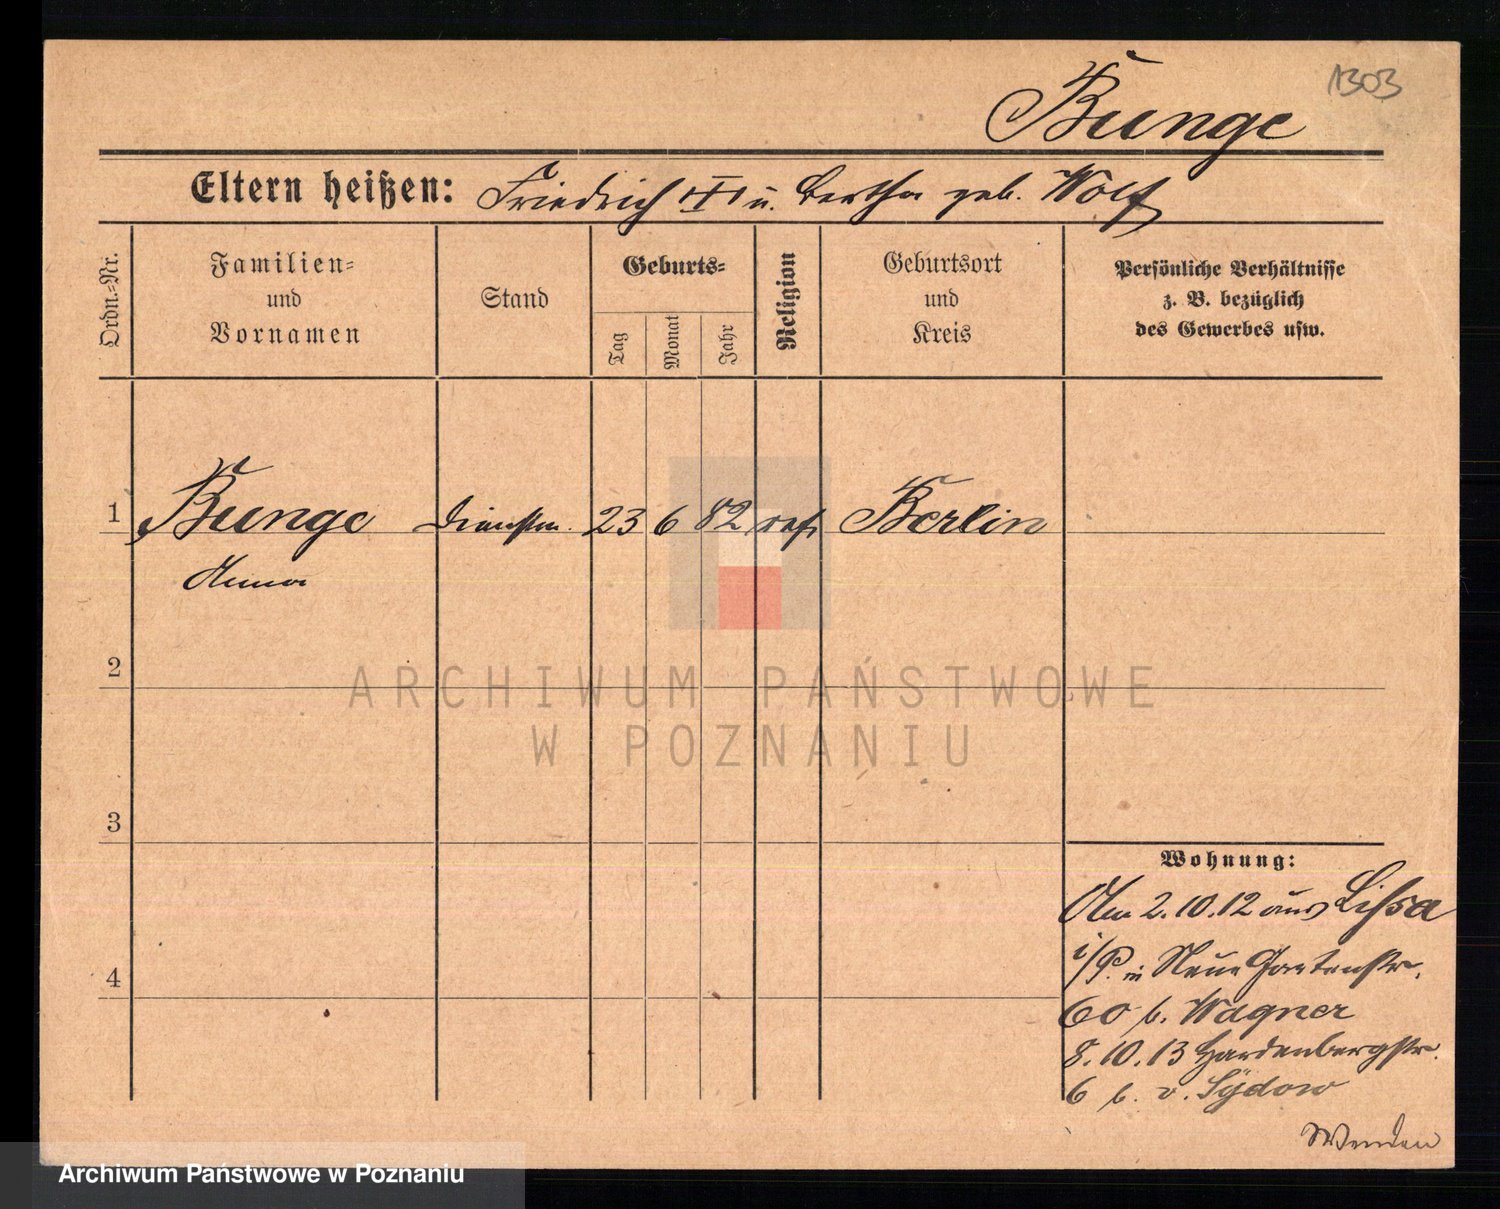 1303
Bunge
Eltern heißen: Friedrich u. Bertha geb. Wolf
Ordn.=Nr.
Familien=
und
Vornamen
Stand
Geburts=
Tag
Monat
Jahr
Religion
Geburtsort
und
Kreis
Persönliche Verhältnisse
z. B. bezüglich
des Gewerbes usw.
1 Bunge Dienstm. 23 6 82 ref. Berlin
Anna
2
ARCHIWUM PAŃSTWOWE
W POZNANIU
3
Wohnung:
Am 2.10.12 aus Lissa
i/P. in Neue Gartenstr.
4
60 b. Wagner
8.10.13 Hardenbergstr.
6 b. v. Sydow
Wenden
Archiwum Państwowe w Poznaniu